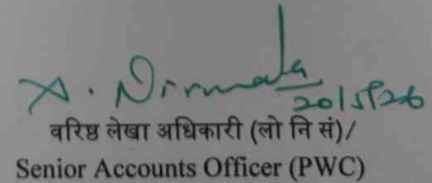 A. Nirmala
20/5/26
वरिष्ठ लेखा अधिकारी (लो नि सं)/
Senior Accounts Officer (PWC)